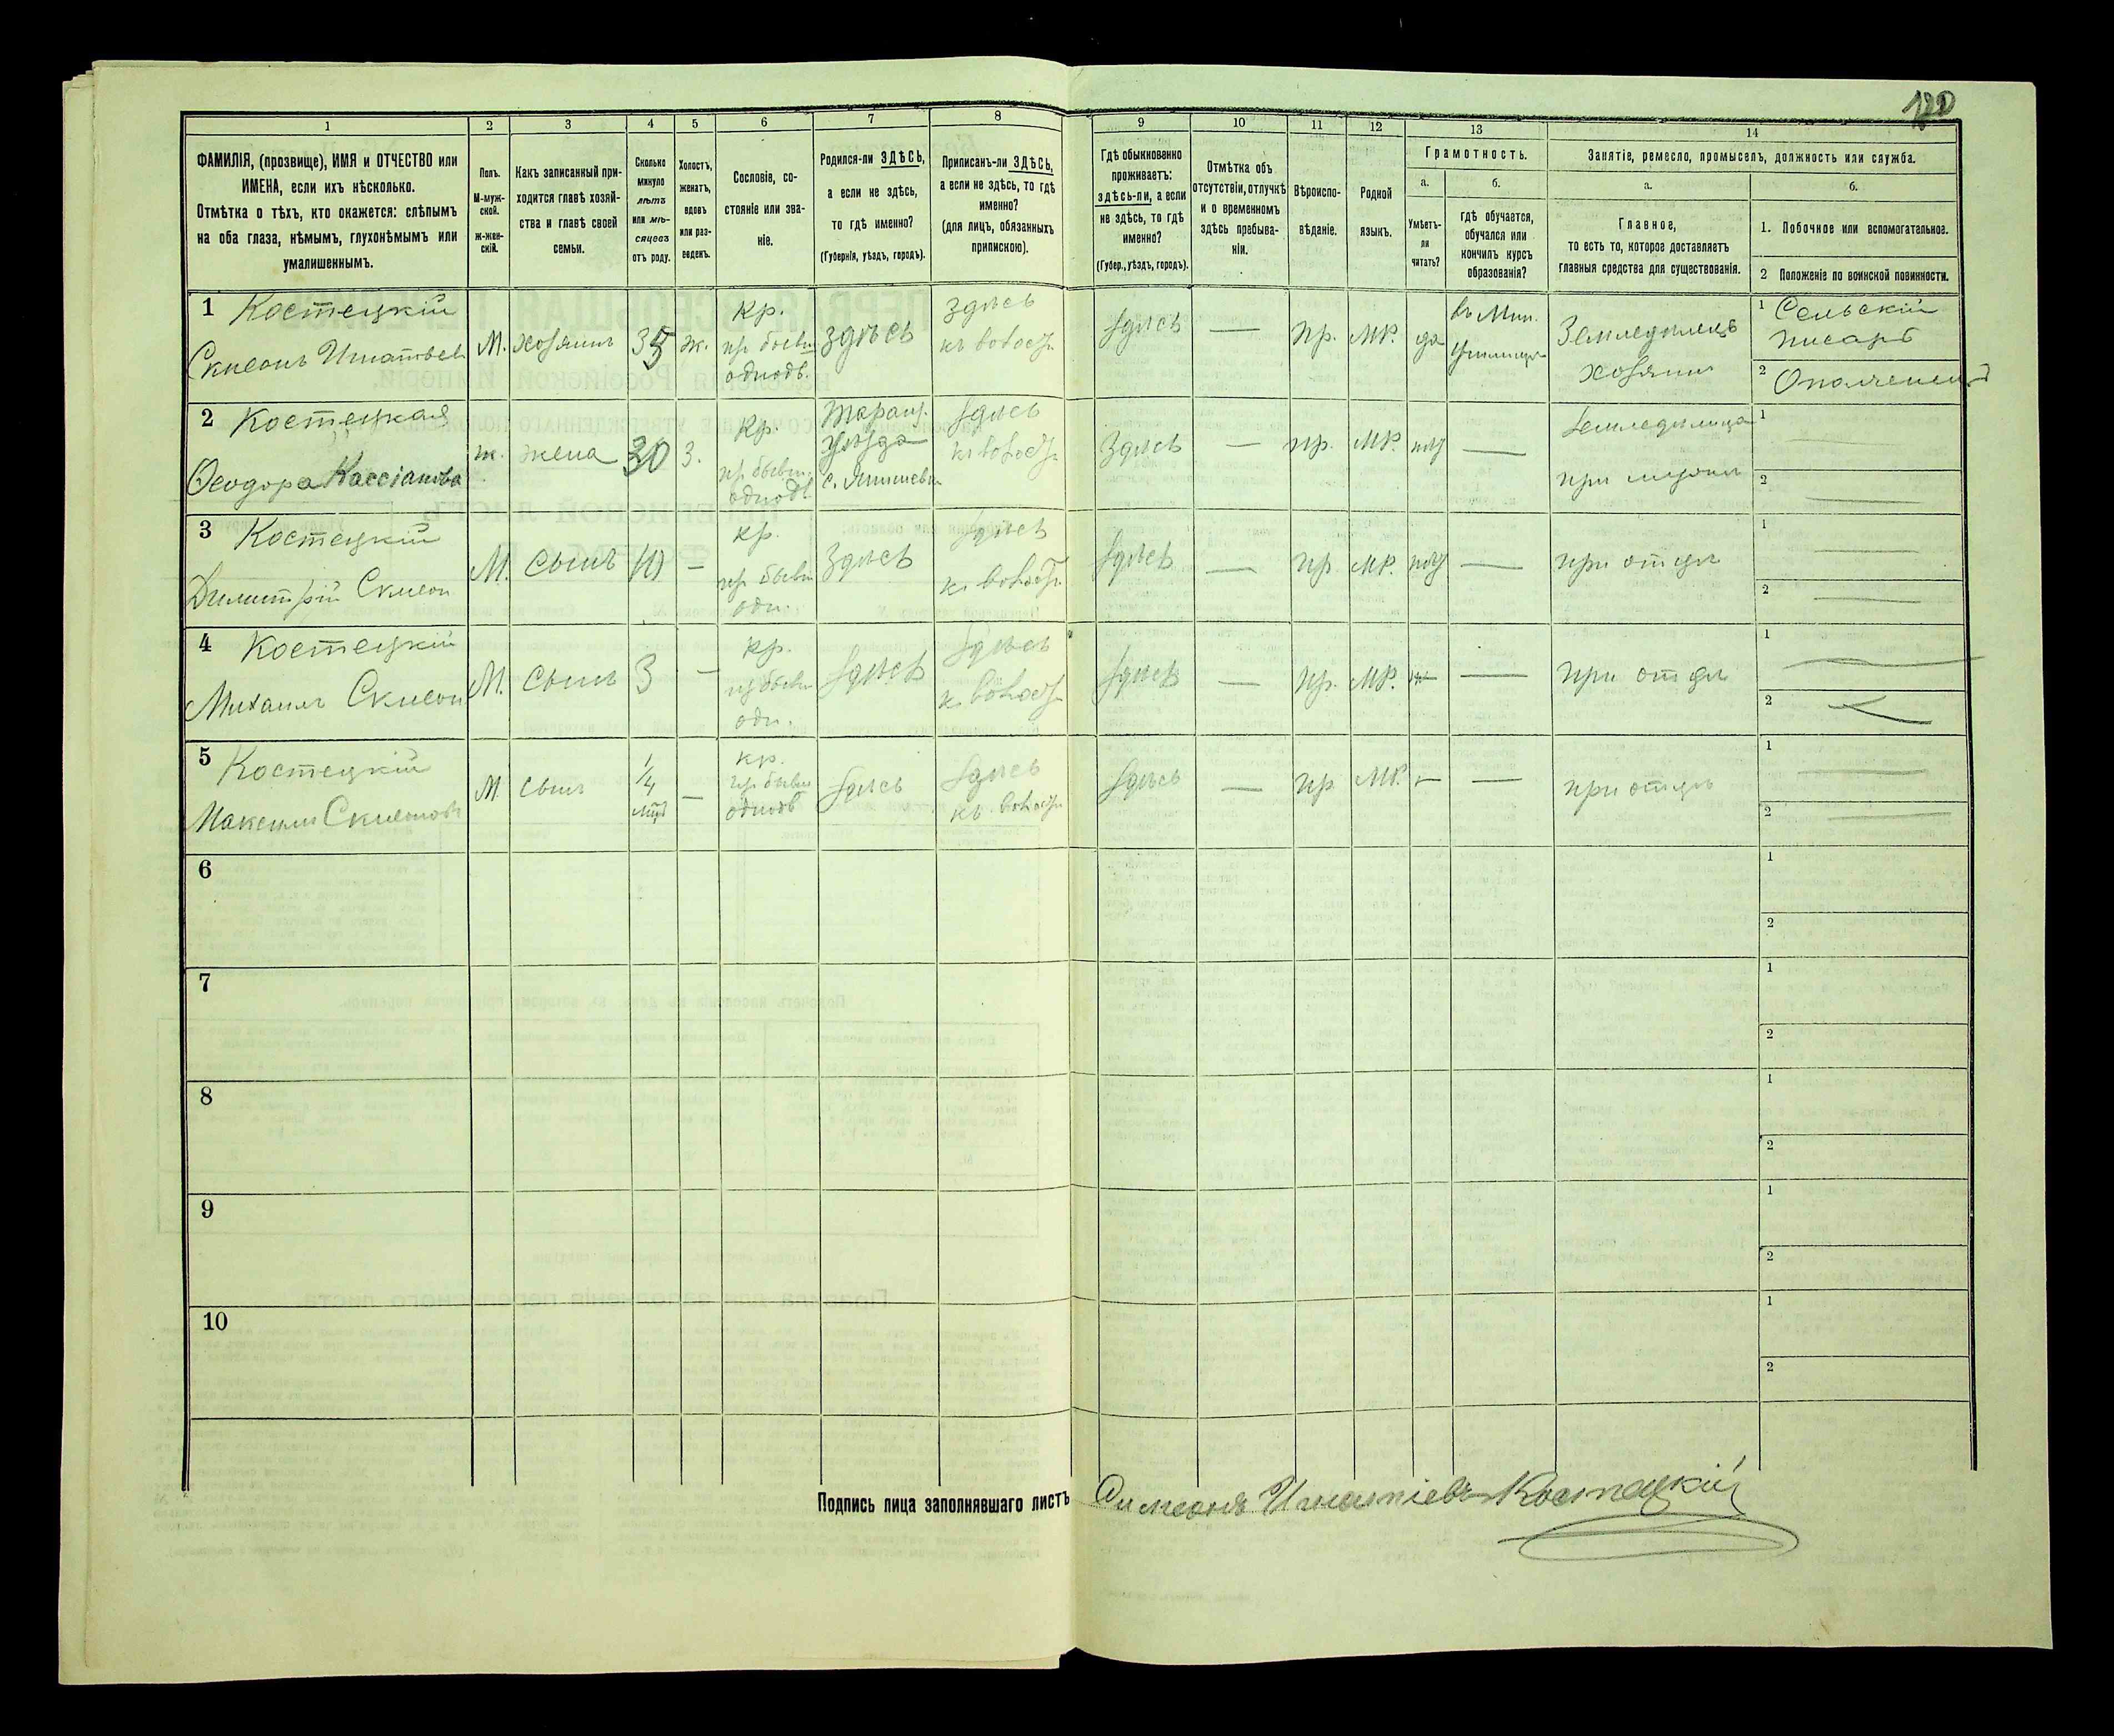 120
1
2
3
4
5
6
7
8
9
10
11
12
13
14
ФАМИЛІЯ, (прозвище), ИМЯ и ОТЧЕСТВО или
ИМЕНА, если ихъ нѣсколько.
Отмѣтка о тѣхъ, кто окажется: слѣпымъ
на оба глаза, нѣмымъ, глухонѣмымъ или
умалишеннымъ.
Полъ.
М-муж-
ской.
Ж-жен-
скій.
Какъ записанный при-
ходится главѣ хозяй-
ства и главѣ своей
семьи.
Сколько
минуло
лѣтъ
или мѣ-
сяцевъ
отъ роду.
Холостъ,
женатъ,
вдовъ
или раз-
веденъ.
Сословіе, со-
стояніе или зва-
ніе.
Родился-ли ЗДѢСЬ,
а если не здѣсь,
то гдѣ именно?
(Губернія, уѣздъ, городъ).
Приписанъ-ли ЗДѢСЬ,
а если не здѣсь, то гдѣ
именно?
(для лицъ, обязанныхъ
припискою).
Гдѣ обыкновенно
проживаетъ:
здѣсь-ли, а если
не здѣсь, то гдѣ
именно?
(Губер., уѣздъ, городъ).
Отмѣтка объ
отсутствіи, отлучкѣ
и о временномъ
здѣсь пребыва-
ніи.
Вѣроиспо-
вѣданіе.
Родной
языкъ.
Грамотность.
а.
Умѣетъ-
ли
читать?
б.
гдѣ обучается,
обучался или
кончилъ курсъ
образованія?
Занятіе, ремесло, промыселъ, должность или служба.
а.
Главное,
то есть то, которое доставляетъ
главныя средства для существованія.
б.
1. Побочное или вспомогательное.
2 Положеніе по воинской повинности.
1 Костецкій
М. хозяинъ 35 ж.
кр.
здѣсь
здѣсь
здѣсь — пр. мр. да
Земледѣлецъ
хозяинъ
1 Сельскій
писарь
2
2 Костецкая
Ѳеодора Кассіанова
ж. жена 30 З.
кр.
уѣзда
здѣсь
здѣсь — пр. мр. —
при мужѣ
1
2
3 Костецкій
Димитрій
М. сынъ 10 —
кр.
здѣсь
здѣсь
здѣсь — пр. мр. —
при отцѣ
1
2
4 Костецкій
Михаилъ
М. сынъ 3 —
кр.
здѣсь
здѣсь
здѣсь — пр. мр. —
при отцѣ
1
2
5 Костецкій
М. сынъ 1/4 —
кр.
здѣсь
здѣсь
здѣсь — пр. мр. — —
при отцѣ
1
2
6
1
2
7
1
2
8
1
2
9
1
2
10
1
2
Подпись лица заполнявшаго листъ Симеонъ Игнатіевъ Костецкій